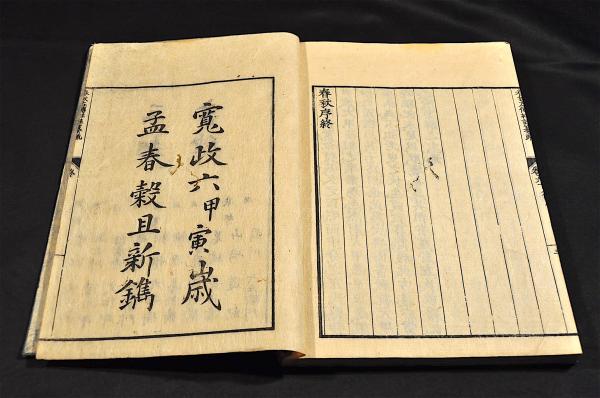 春秋序終
寛政六甲寅歳
孟春穀旦新鐫